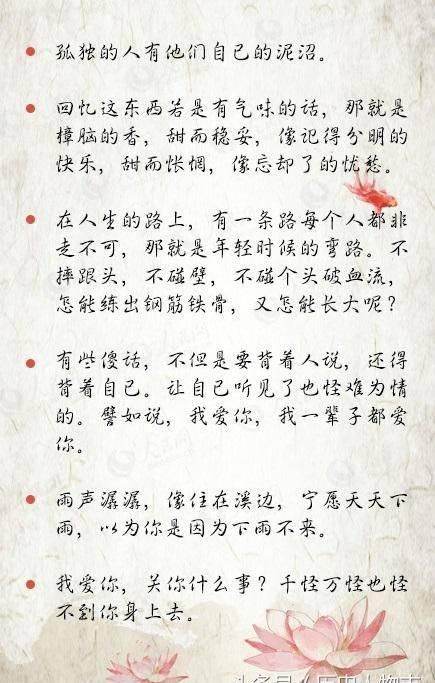 孤独的人有他们自己的泥沼。
回忆这东西若是有气味的话，那就是
樟脑的香，甜而稳妥，像记得分明的
快乐，甜而怅惘，像忘却了的忧愁。
在人生的路上，有一条路每个人都非
走不可，那就是年轻时候的弯路。不
摔跟头，不碰壁，不碰个头破血流，
怎能练出钢筋铁骨，又怎能长大呢？
有些傻话，不但是要背着人说，还得
背着自己。让自己听见了也怪难为情
的。譬如说，我爱你，我一辈子都爱
你。
雨声潺潺，像住在溪边，宁愿天天下
雨，以为你是因为下雨不来。
我爱你，关你什么事？千怪万怪也怪
不到你身上去。